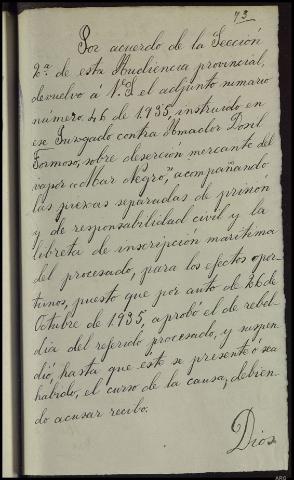 73
Por acuerdo de la Sección
2ª de esta Audiencia provincial,
devuelvo á V.S. el adjunto sumario
número 46 de 1.935, instruido en
ese Juzgado contra Amador Dosil
Formoso, sobre deserción mercante del
vapor "Mar Negro", acompañando
las piezas separadas de prisión
y de responsabilidad civil y la
libreta de inscripción marítima
del procesado, para los efectos opor-
tunos, puesto que por auto de 26 de
Octubre de 1.935, aprobó el de rebel-
dia del referido procesado, y suspen-
dió, hasta que este se presente ó sea
habido, el curso de la causa, debien-
do acusar recibo.
Dios
ARG